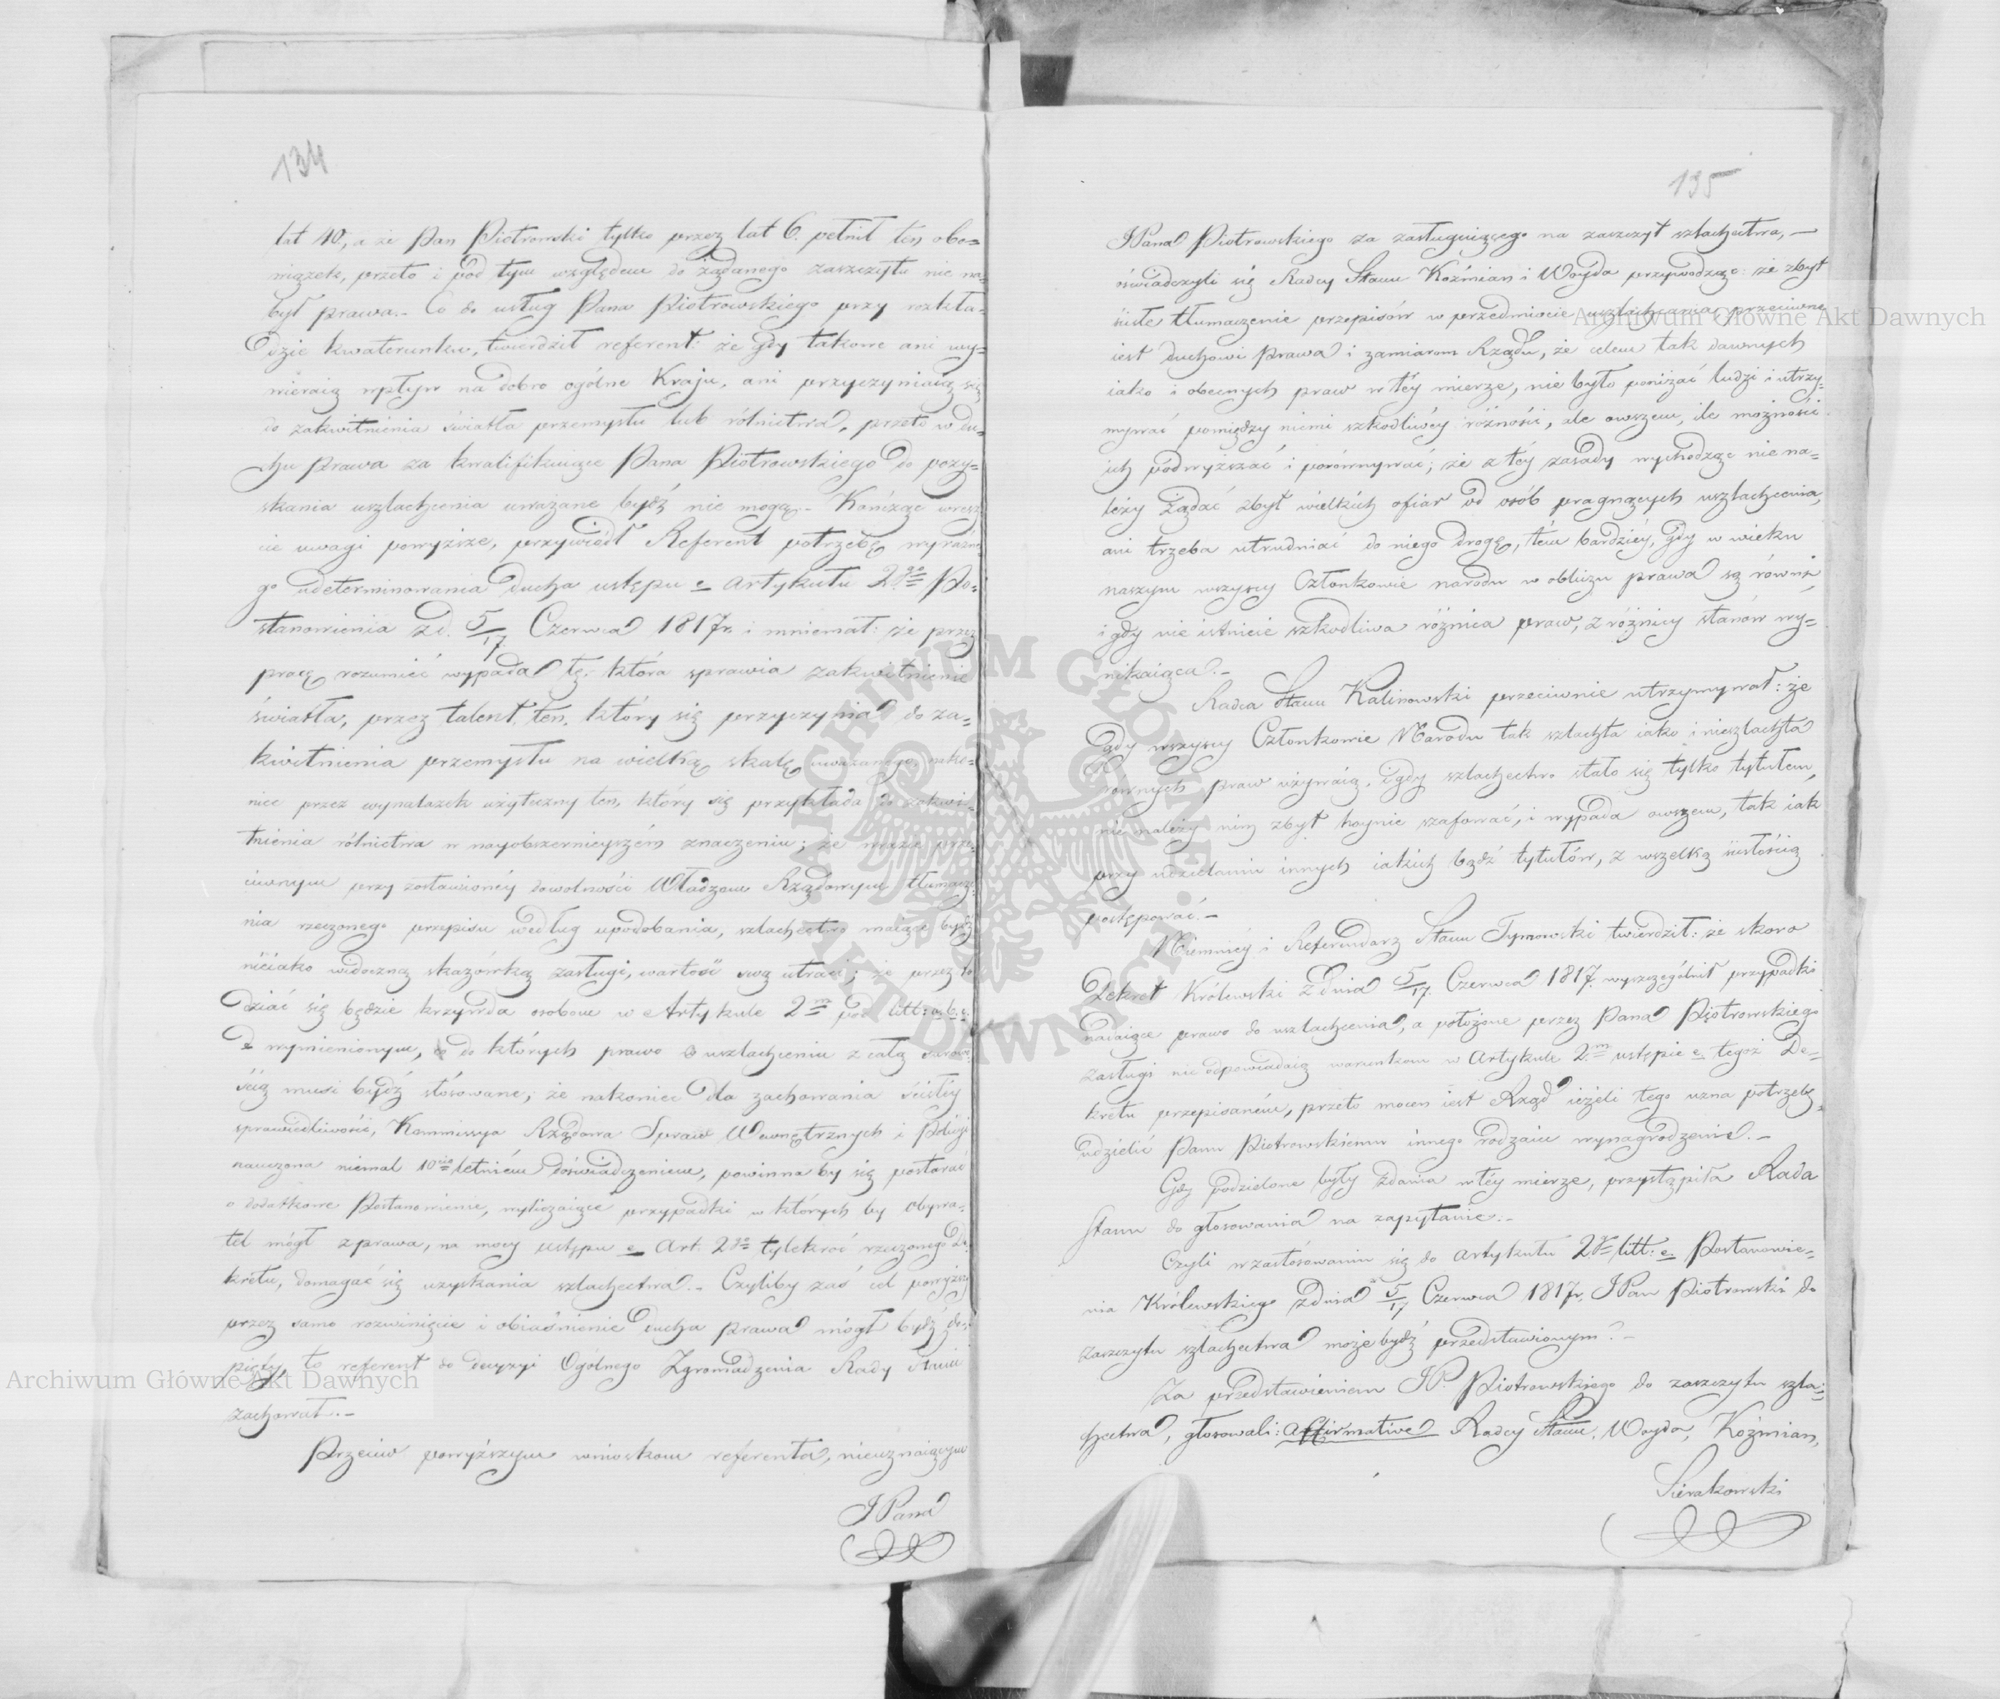 134
lat 10, a że Pan Piotrowski tylko przez lat 6. pełnił ten obo=
wiązek, przeto i pod tym względem do żądanego zaszczytu nie na=
był prawa.- Co do usług Pana Piotrowskiego przy rozkła=
dzie kwaterunku, twierdził referent: że gdy takowe ani wy=
wieraią wpływ na dobro ogólne Kraju, ani przyczyniaią się
do zakwitnienia światła przemysłu lub rólnictwa, przeto w du=
chu prawa za kwalifikuiące Pana Piotrowskiego do pozy=
skania uszlachcenia uważane bydź nie mogą.- Kończąc wresz
cie uwagi powyższe, przywiódł Referent potrzebę wyraźne
go udeterminowania ducha ustępu e Artykułu 2go Po=
stanowienia z d. 5/17 Czerwca 1817r. i mniemał: że przez
pracę rozumieć wypada tę, która sprawia zakwitnienie
światła, przez talent ten, który się przyczynia do za=
kwitnienia przemysłu na wielką skalę uważanego, nako=
niec przez wynalazek użyteczny ten, który się przykłada do zakwi=
tnienia rólnictwa w nayobszernieyszém znaczeniu; że w razie prze=
ciwnym przy zostawionéy dowolności Władzom Rządowym tłumacze
nia rzeczonego przepisu według upodobania, szlachectwo maiące bydź
nieiako widoczną skazówką zasługi, wartość swą utraci; że przez to
dziać się będzie krzywda osobom w Artykule 2m pod litt: a. b. c.
d wymienionym, do których prawo o uszlachceniu z całą surowo=
ścią musi bydź stosowane; że nakoniec dla zachowania ścisłéy
sprawiedliwości, Kommissya Rządowa Spraw Wewnętrznych i Policyi
nauczona niemal 10cio letniém doświadczeniem, powinna by się postarać
o dodatkowe Postanowienie, wyliczaiące przypadki w których by Obywa=
tel mógł z prawa, na mocy ustępu e Art. 2go tylekroć rzeczonego De=
kretu, domagać się uzyskania szlachectwa.- Czyliby zaś cel powyższy
przez samo rozwinięcie i obiaśnienie ducha prawa mógł bydź do=
pięty, to referent do decyzyi Ogólnego Zgromadzenia Rady Stanu
zachował.-
Przeciw powyższym wnioskom referenta, nieuznaiącym
JPana
135
JPana Piotrowskiego za zasługuiącego na zaszczyt szlachectwa,-
oświadczyli się Radcy Stanu Koźmian i Woyda przywodząc: że zbyt
ścisłe tłumaczenie przepisów w przedmiocie uszlachcania przeciwne
iest duchowi prawa i zamiarom Rządu, że celem tak dawnych
iako i obecnych praw w téy mierze, nie było poniżać ludzi i utrzy=
mywać pomiędzy niemi szkodliwéy różności, ale owszem, ile możności
ich podwyższać i porównywać; że z téy zasady wychodząc nie na=
leży żądać zbyt wielkich ofiar od osób pragnących uszlachcenia,
ani trzeba utrudniać do niego drogę, tém bardziéy, gdy w wieku
naszym wszyscy Członkowie narodu w obliczu prawa są równi,
i gdy nie istnieie szkodliwa różnica praw, z różnicy stanów wy=
nikaiąca.-
Radca Stanu Kalinowski przeciwnie utrzymywał: że
gdy wszyscy Członkowie Narodu tak szlachta iako i nieszlachta
równych praw używaią, i gdy szlachectwo stało się tylko tytułem,
nie należy nim zbyt hoynie szafować, i wypada owszem, tak iak
przy udzielaniu innych iakich bądź tytułów, z wszelką ścisłością
postępować.-
Niemniéy i Referendarz Stanu Tymowski twierdził: że skoro
Dekret Królewski z dnia 5/17. Czerwca 1817. wyszczególnił przypadki
nadaiące prawo do uszlachcenia, a położone przez Pana Piotrowskiego
zasługi nie odpowiadaią warunkom w Artykule 2m ustępie e. tegoż De=
kretu przepisanéwm, przeto mocen iest Rząd ieżeli tego uzna potrzebę,
udzielić Panu Piotrowskiemu innego rodzaiu wynagrodzenie.-
Gdy podzielone były zdania w téy mierze, przystąpiła Rada
Stanu do głosowania na zapytanie.-
Czyli w zastosowaniu się do Artykułu 2go litt: e. Postanowie=
nia Królewskiego z dnia 5/17 Czerwca 1817r, JPan Piotrowski do
zaszczytu szlachectwa może bydź przedstawionym?-
Za przedstawieniem JP. Piotrowskiego do zaszczytu szla=
chectwa, głosowali: affirmative Radcy Stanu, Woyda, Koźmian,
Sierakowski
Archiwum Główne Akt Dawnych
Archiwum Główne Akt Dawnych
ARCHIWUM GŁÓWNE AKT DAWNYCH